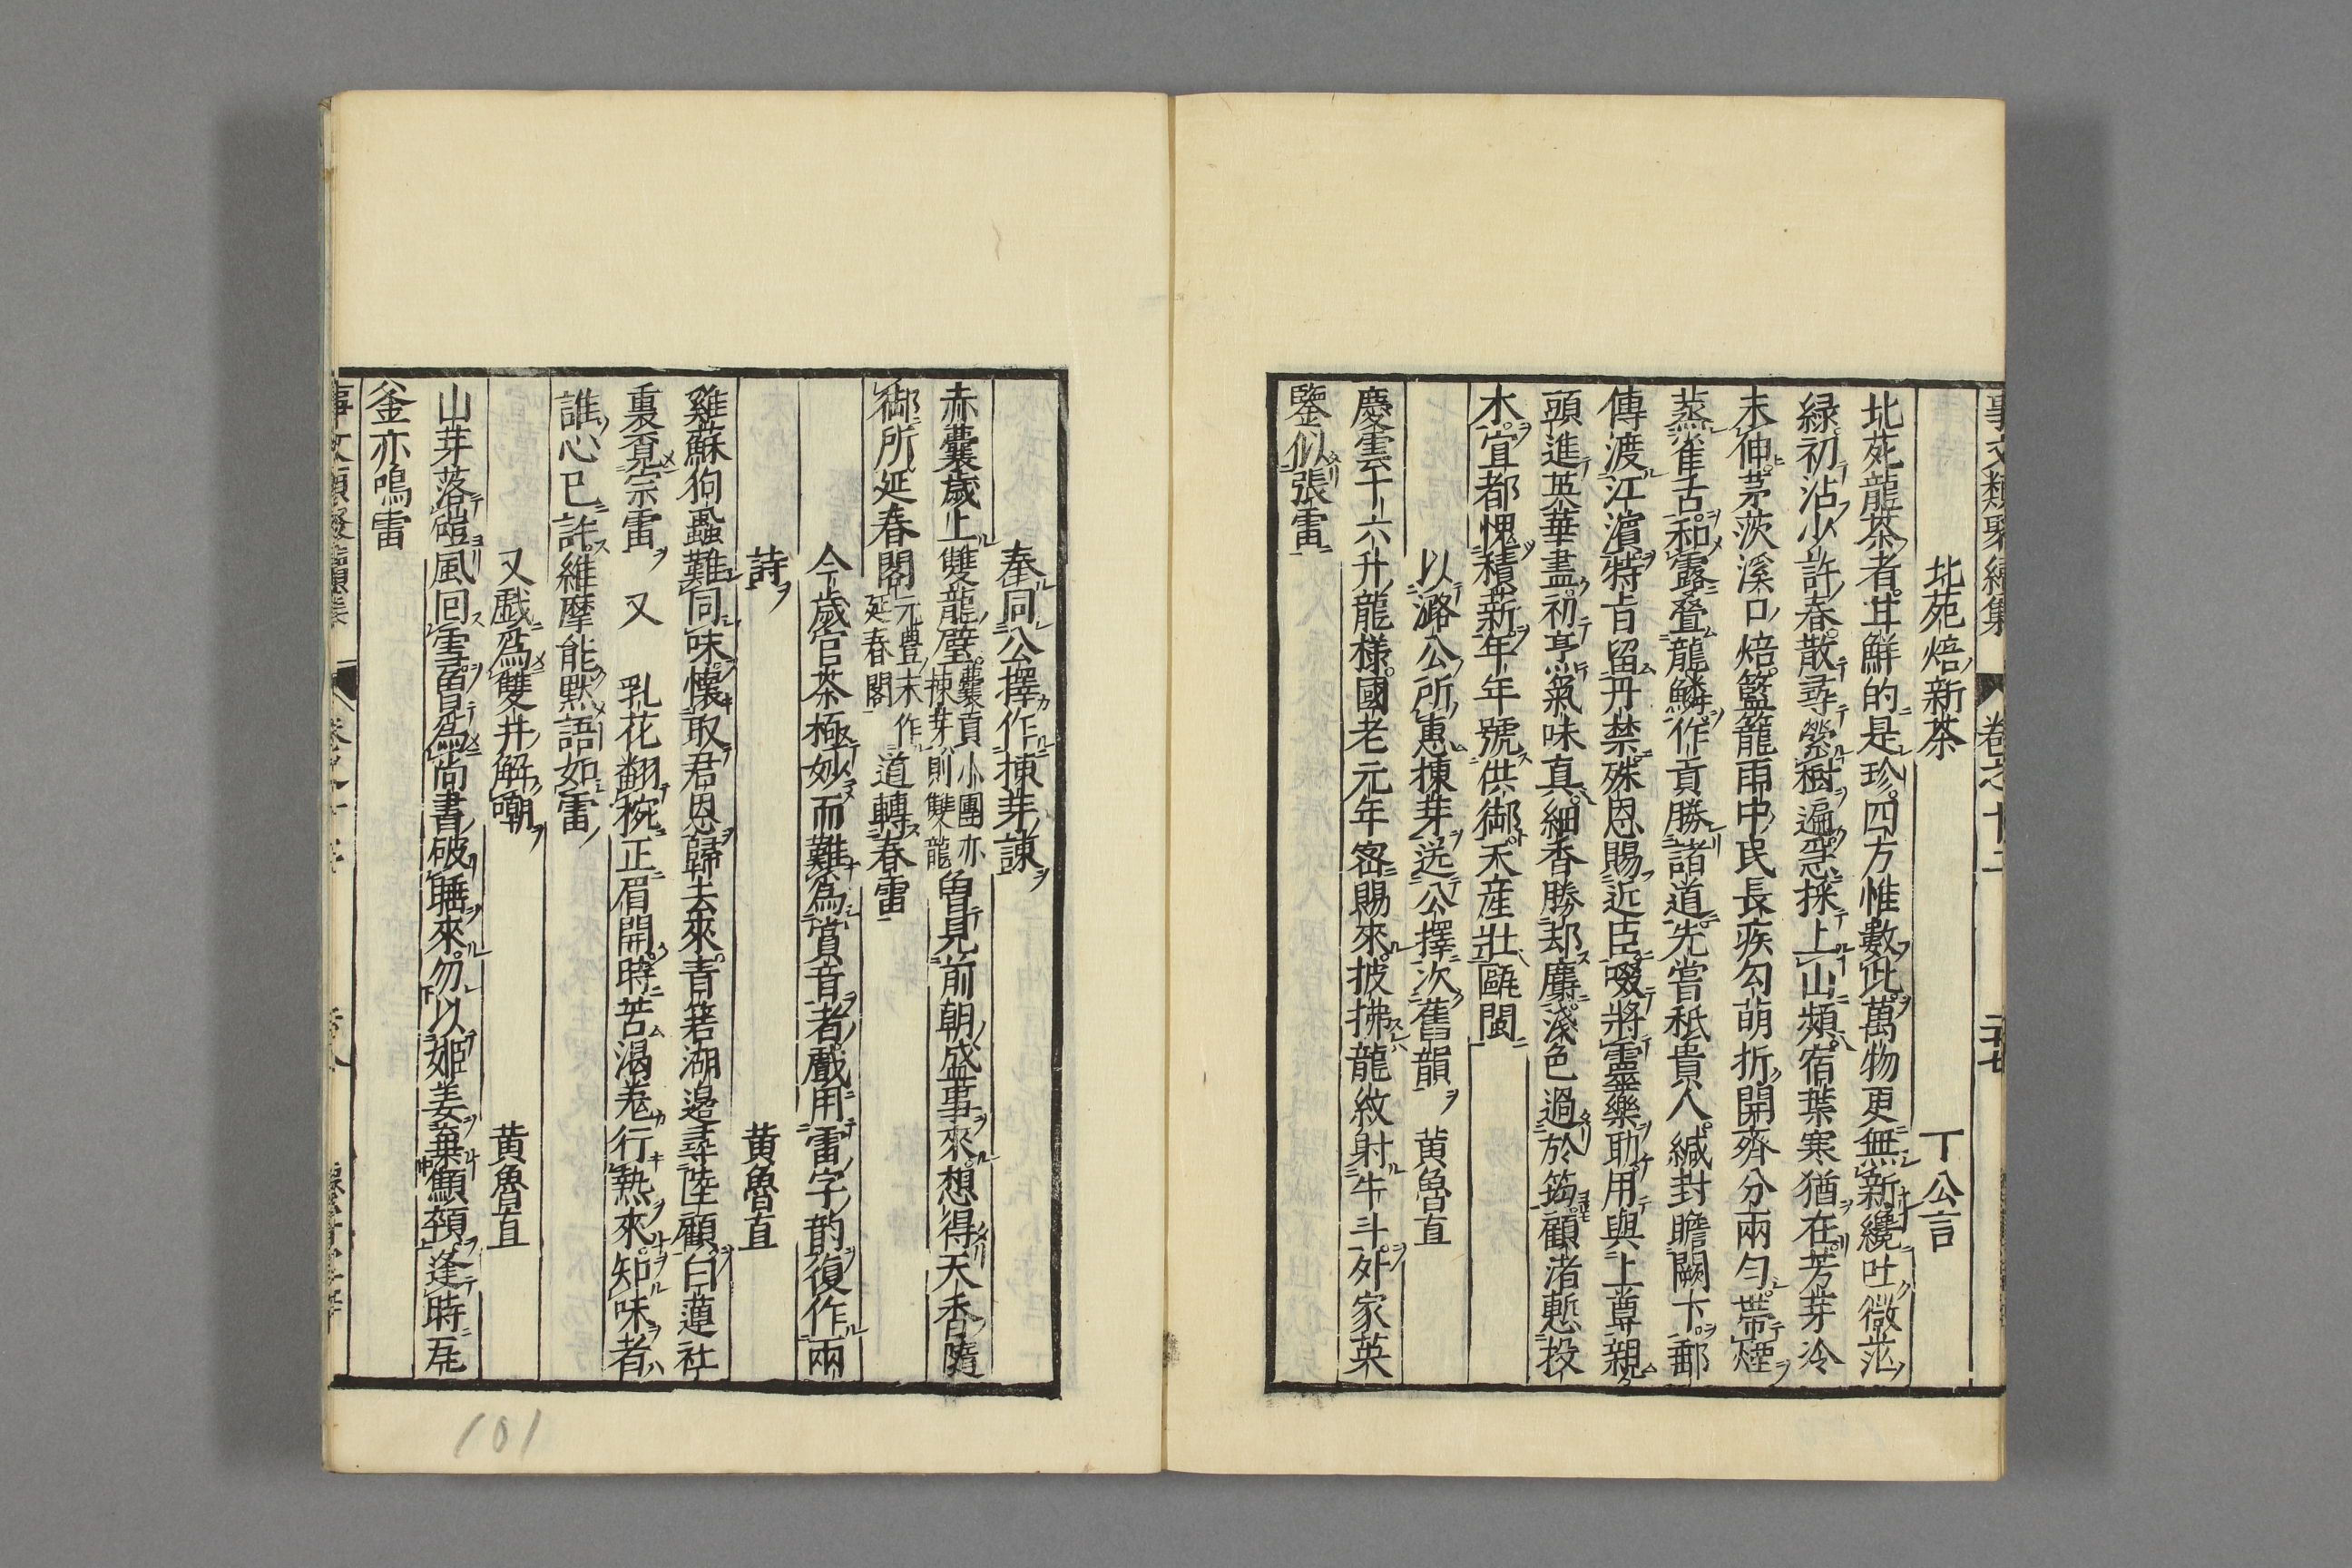 事文類聚續集 卷之十二 二十七
北苑焙新茶 丁公言
北苑龍茶者甘鮮的是珍四方惟數此萬物更無新纔吐微茫
緑初沾少許春散尋縈樹遍急採上山頻宿葉寒猶在芳芽冷
未伸茅茨溪口焙籃籠雨中民長疾勾萌折開齊分兩勻帶煙
蒸雀舌和露叠龍鱗作貢勝諸道先嘗秖貴人緘封瞻闕下郵
傳渡江濵特旨留丹禁殊恩賜近臣啜將靈藥助用與上尊親
頭進英華盡初烹氣味真細香勝却麝淺色過於筠顧渚慙投
木宜都愧積新年年號供御天產壯甌閩
以潞公所惠揀芽送公擇次舊韻 黄魯直
慶雲十六升龍樣國老元年密賜來披拂龍紋射牛斗外家英
鑒似張雷
奉同公擇作揀芽諫
赤囊歲上雙龍璧囊貢小團亦揀芽則雙龍曽見前朝盛事來想得天香隨
御所延春閣元豊末作延春閣道轉春雷
今歲官茶極妙而難為賞音者戲用雷字韵復作兩
詩 黄魯直
雞蘇狗蝨難同味懷取君恩歸去來青箬湖邉尋陸顧白蓮社
裏覔宗雷 又 乳花翻椀正眉開時苦渴羗行熱來知味者
誰心已許維摩能黙語如雷
又戲為雙井解嘲 黄魯直
山芽落磑風回雪曽為尚書破睡來勿以姬姜棄顦顇逢時瓦
釜亦鳴雷
101